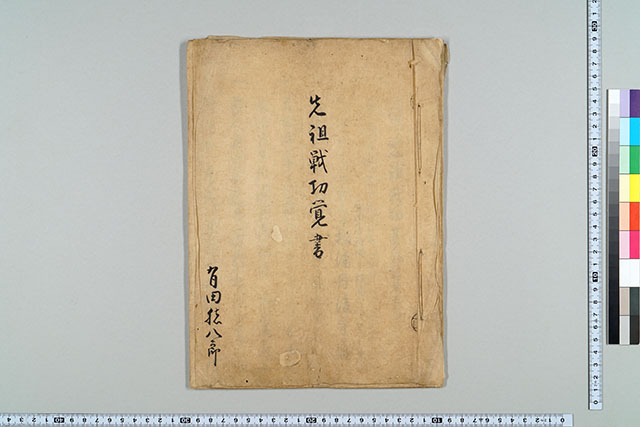 先祖戦功覚書
有田
八郎